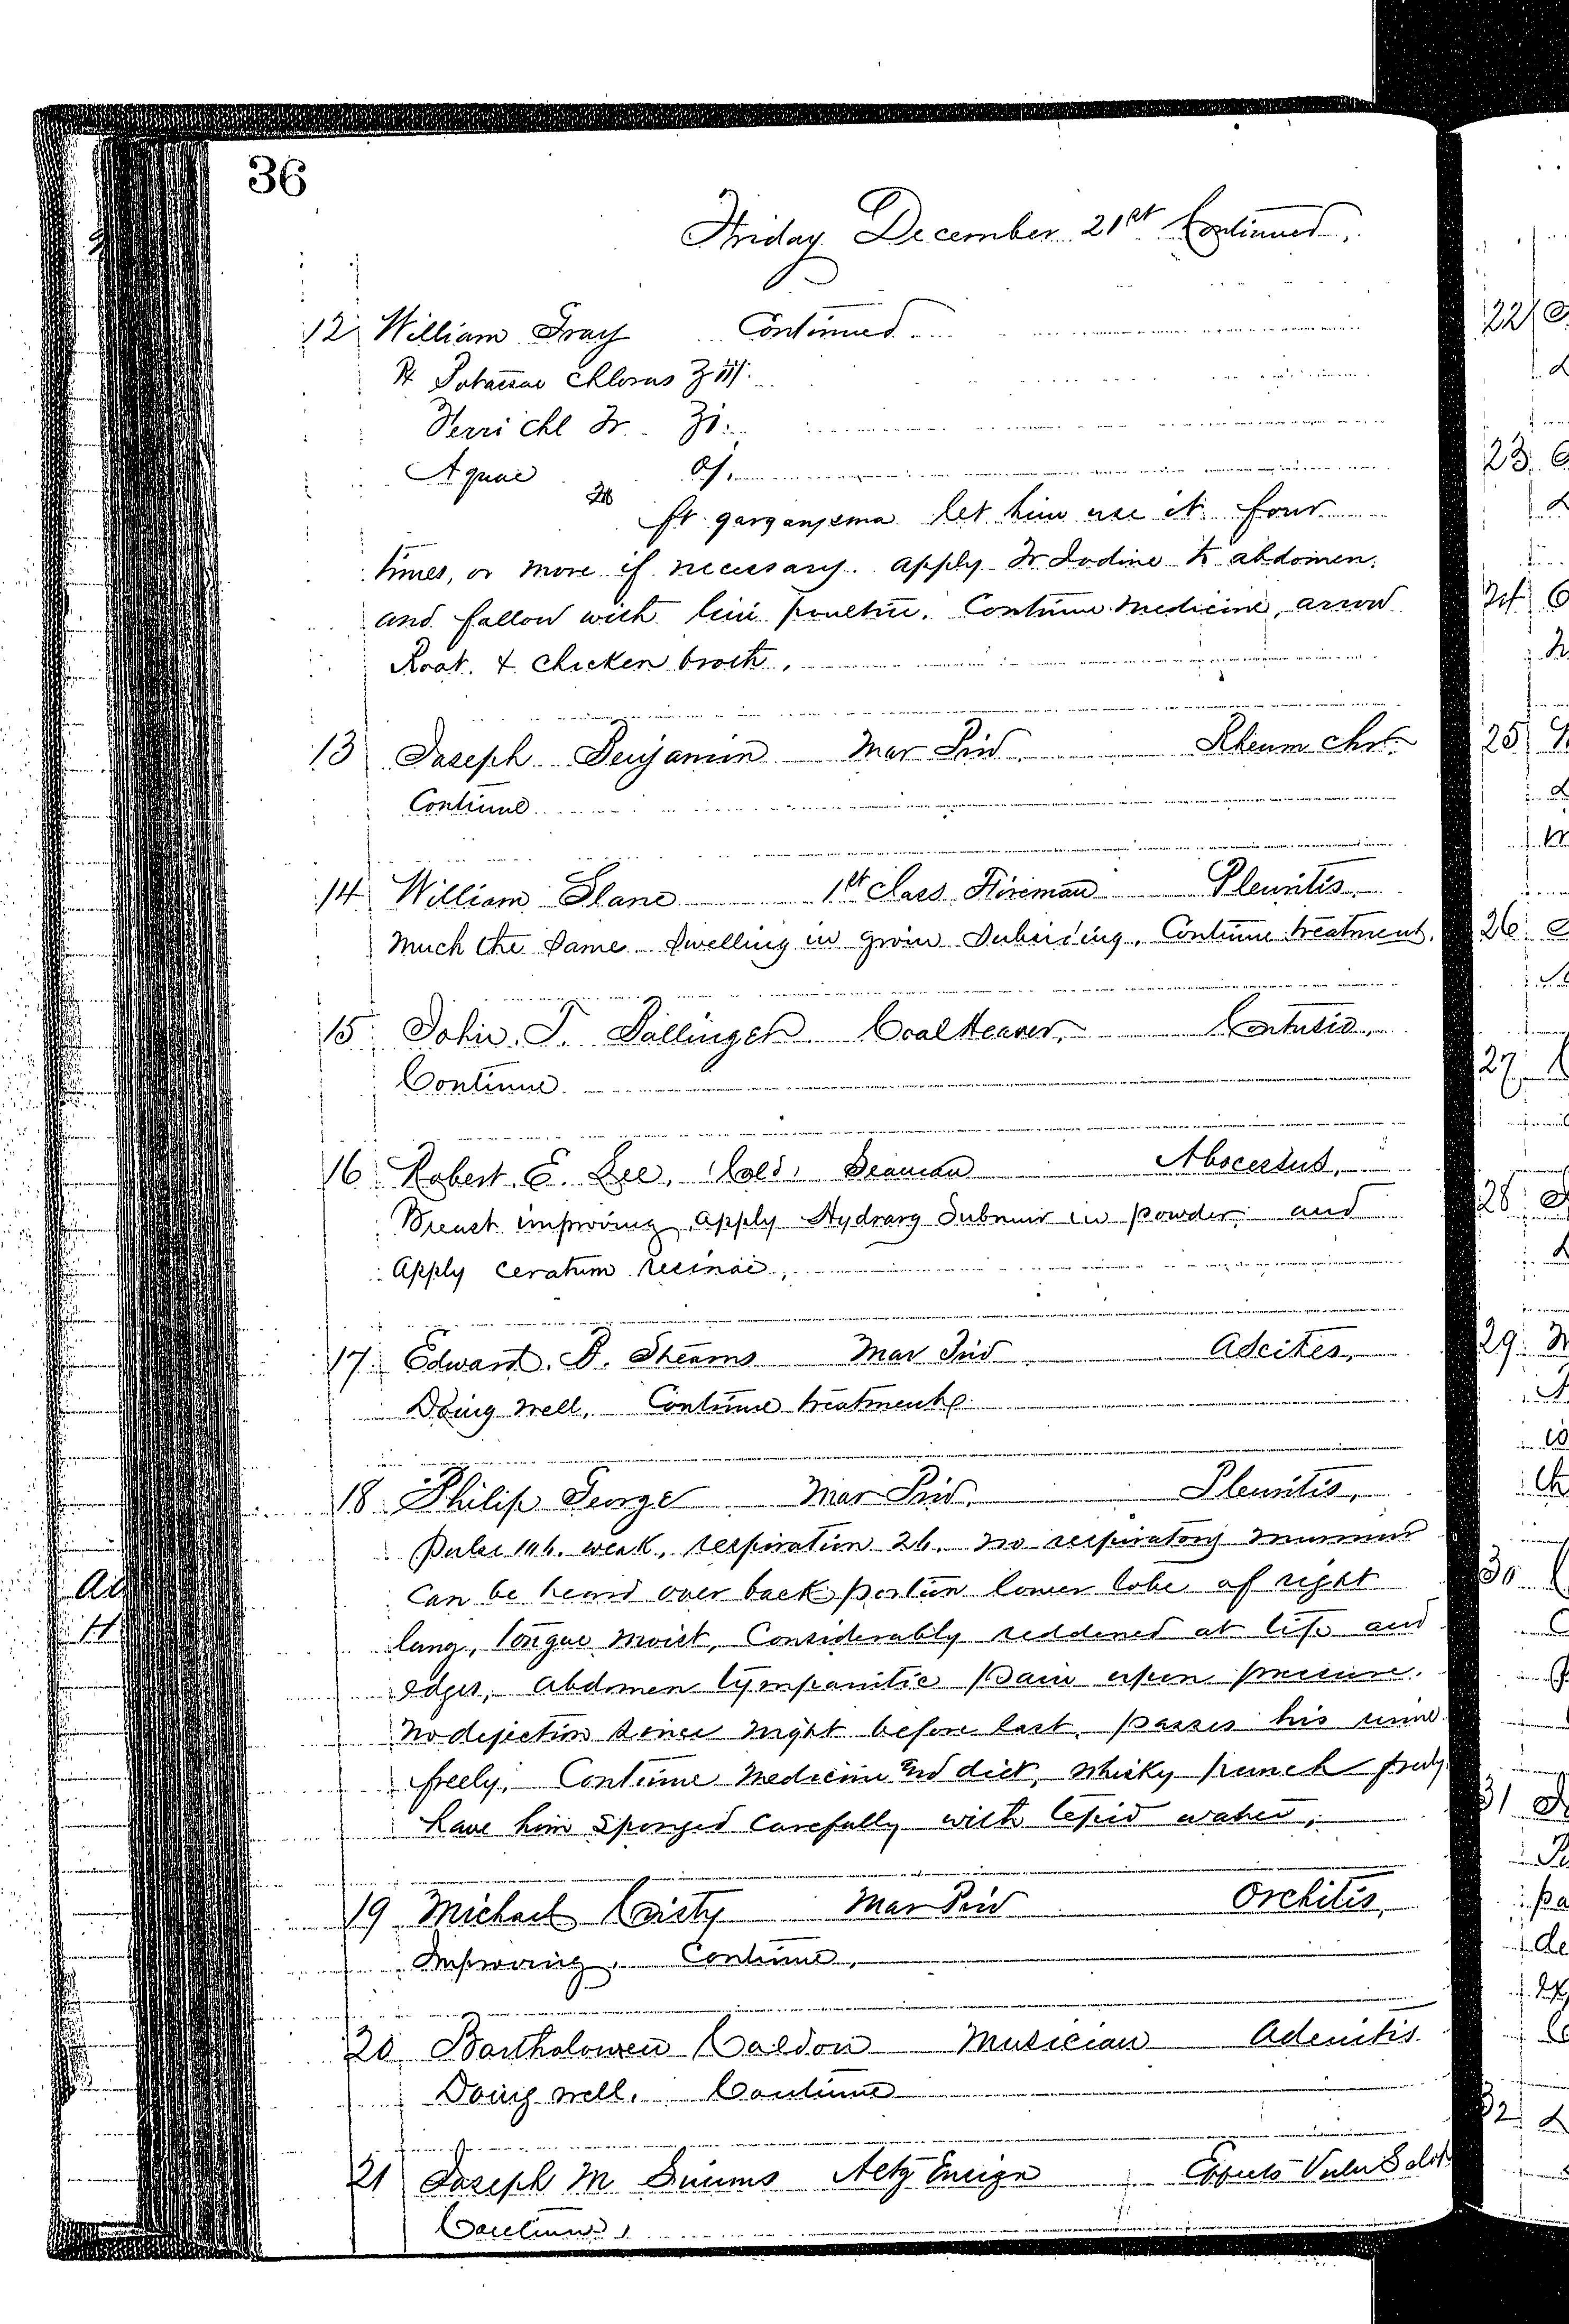 36
Friday December 21st Continued.
12 William Gray Continued
℞ Potassae Chloras ʒ iij.
Ferri Chl Tr. ʒi.
Aquae Oj.
M
ft gargarysma let him use it four
times, or more if necessary. apply Tr Iodine to abdomen.
and follow with lini poultice. Continue medicine, arrow
Root. & chicken broth.
13 Joseph Benjamin Mar Priv. Rheum Chr.
Continue
14 William Slane 1st Class Fireman Pleuritis.
Much the same swelling in groin subsiding. Continue treatment.
15 John. T. Ballinger Coal Heaver. Contusio.
Continue
16 Robert. E. Lee. Cold. Seaman Abscessus.
Breast improving apply Hydrarg Submur in powder, and
Apply ceratum resinae,
17 Edward. B. Stearns Mar Priv Ascites.
Doing well. Continue treatment
18 Philip George Mar Priv. Pleuritis.
Pulse 116. weak. respiration 26. no respiratory murmur
can be heard over back portion lower lobe of right
lung, tongue moist, Considerably reddened at tip and
edges, Abdomen tympanitic pain upon pressure.
No dejection since night before last. passes his urine
freely. Continue medicine and diet, whisky punch freely
have him sponged carefully with tepid water,
19 Michael Cristy Mar Priv Orchitis.
Improving. Continue.
20 Bartholomew Caldon Musician Adenitis.
Doing well. Continue
21 Joseph M Simms Actg Ensign Effects Vuln Sclot
Continue,
22
23
24
25
26
27
28
29
30
31
32